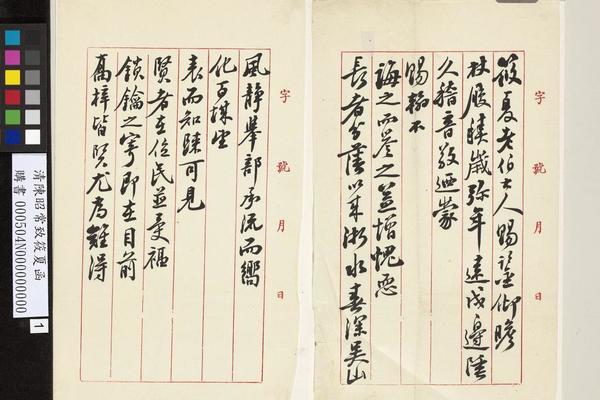 字 號 月 日
筱夏老伯大人賜鑒仰瞻
杖履睽歲彌年遠戍邊陲
久稽音敬迺蒙
賜翰不
誨之而譽之益增愧恧
長者分藩以來浙水春深吳山
字 號 月 日
風靜舉部承流而嚮
化可坐
表而知臻可見
賢者在位民並受福
鎖鑰之寄即在目前
喬梓皆賢尤為難得
清陳昭常致筱夏函
購書 000504N000000000
1